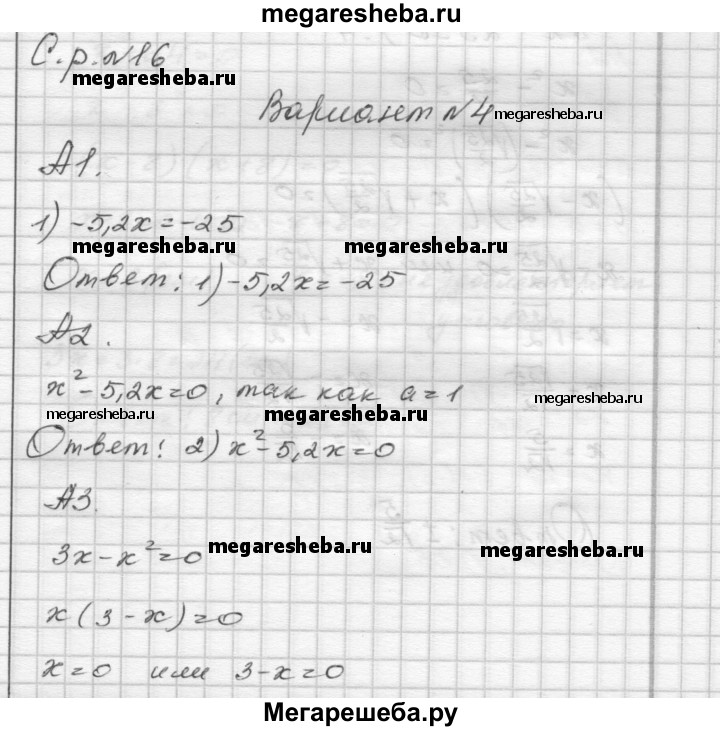 megaresheba.ru
С.р.№16
megaresheba.ru
Вариант №4 megaresheba.ru
А1.
1) -5,2x = -25
megaresheba.ru megaresheba.ru
Ответ: 1) -5,2x = -25
А2.
x² - 5,2x = 0, так как a = 1
megaresheba.ru megaresheba.ru megaresheba.ru
Ответ: 2) x² - 5,2x = 0
А3.
3x - x² = 0 megaresheba.ru megaresheba.ru
x(3 - x) = 0
x = 0 или 3 - x = 0
Мегарешеба.ру